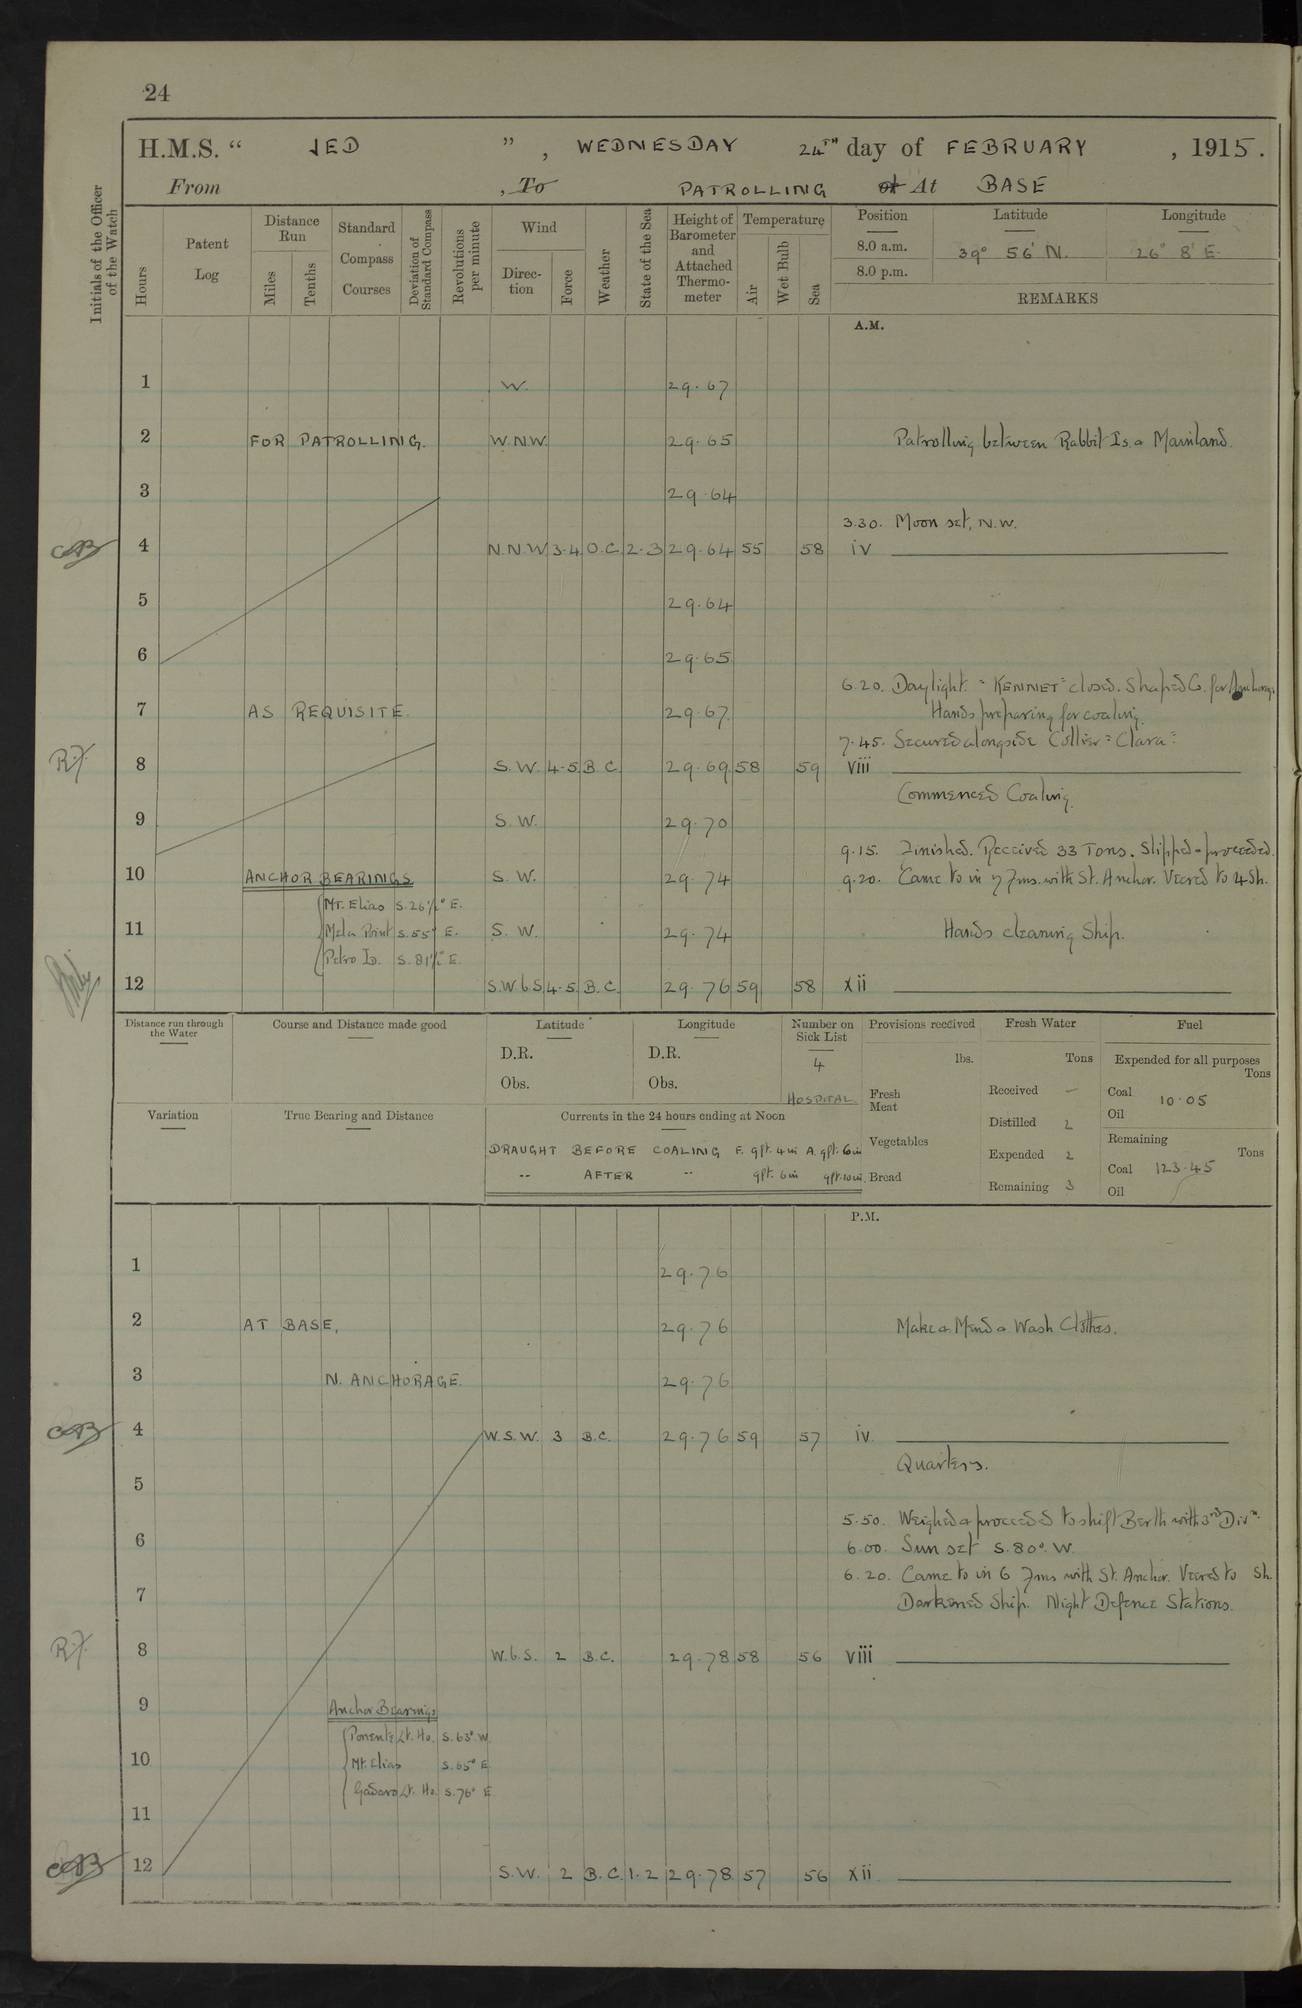 24
H.M.S. “ JED ”, WEDNESDAY 24TH day of FEBRUARY, 1915.
From , To PATROLLING At BASE
Initials of the Officer of the Watch
Hours
Patent Log
Distance Run
Miles
Tenths
Standard Compass Courses
Deviation of Standard Compass
Revolutions per minute
Wind
Direction
Force
Weather
State of the Sea
Height of Barometer and Attached Thermometer
Temperature
Air
Wet Bulb
Sea
Position Latitude Longitude
8.0 a.m. 39° 56' N. 26° 8' E.
8.0 p.m.
REMARKS
A.M.
1 W. 29.67
2 FOR PATROLLING. W.N.W. 29.65 Patrolling between Rabbit Is. & Mainland.
3 29.64
3.30. Moon set, N.W.
4 N.N.W 3-4 O.C. 2-3 29.64 55 58 iv
5 29.64
6 29.65
6.20. Daylight. "KENNET" closed. Shaped Co. for Anchorage
7 AS REQUISITE. 29.67 Hands preparing for coaling.
7.45. Secured alongside Collier "Clara"
R.F. 8 S.W. 4-5 B.C. 29.69 58 59 viii
Commenced Coaling.
9 S.W. 29.70
9.15. Finished. Received 33 Tons. Slipped & proceeded.
10 ANCHOR BEARINGS S.W. 29.74 9.20. Came to in 7 fms. with St. Anchor. Veered to 4 Sh.
Mt. Elias S. 26½° E.
11 Mela Point S. 55° E. S.W. 29.74 Hands cleaning Ship.
Petro Is. S. 81½° E.
12 S.W b S 4-5 B.C. 29.76 59 58 xii
Distance run through the Water
Course and Distance made good
Latitude
D.R.
Obs.
Longitude
D.R.
Obs.
Number on Sick List
4
HOSPITAL
Provisions received
lbs.
Fresh Meat
Vegetables
Bread
Fresh Water
Tons
Received –
Distilled 2
Expended 2
Remaining 3
Fuel
Expended for all purposes
Tons
Coal 10.05
Oil
Remaining
Tons
Coal 123.45
Oil
Variation
True Bearing and Distance
Currents in the 24 hours ending at Noon
DRAUGHT BEFORE COALING F. 9ft. 4in A. 9ft. 6in
" AFTER " 9ft. 6in 9ft. 10in.
P.M.
1 29.76
2 AT BASE, 29.76 Make & Mend & Wash Clothes.
3 N. ANCHORAGE. 29.76
4 W.S.W. 3 B.C. 29.76 59 57 iv.
Quarters.
5
5.50. Weighed & proceeded to shift Berth with 3rd Divn.
6 6.00. Sun set S. 80°. W.
6.20. Came to in 6 fms with St. Anchor. Veered to Sh.
7 Darkened Ship. Night Defence Stations.
R.F. 8 W.b.S. 2 B.C. 29.78 58 56 viii
9 Anchor Bearings
Ponente Lt. Ho. S. 63° W.
10 Mt. Elias S. 65° E
Gadaro Lt. Ho. S. 76° E.
11
12 S.W. 2 B.C. 1-2 29.78 57 56 xii